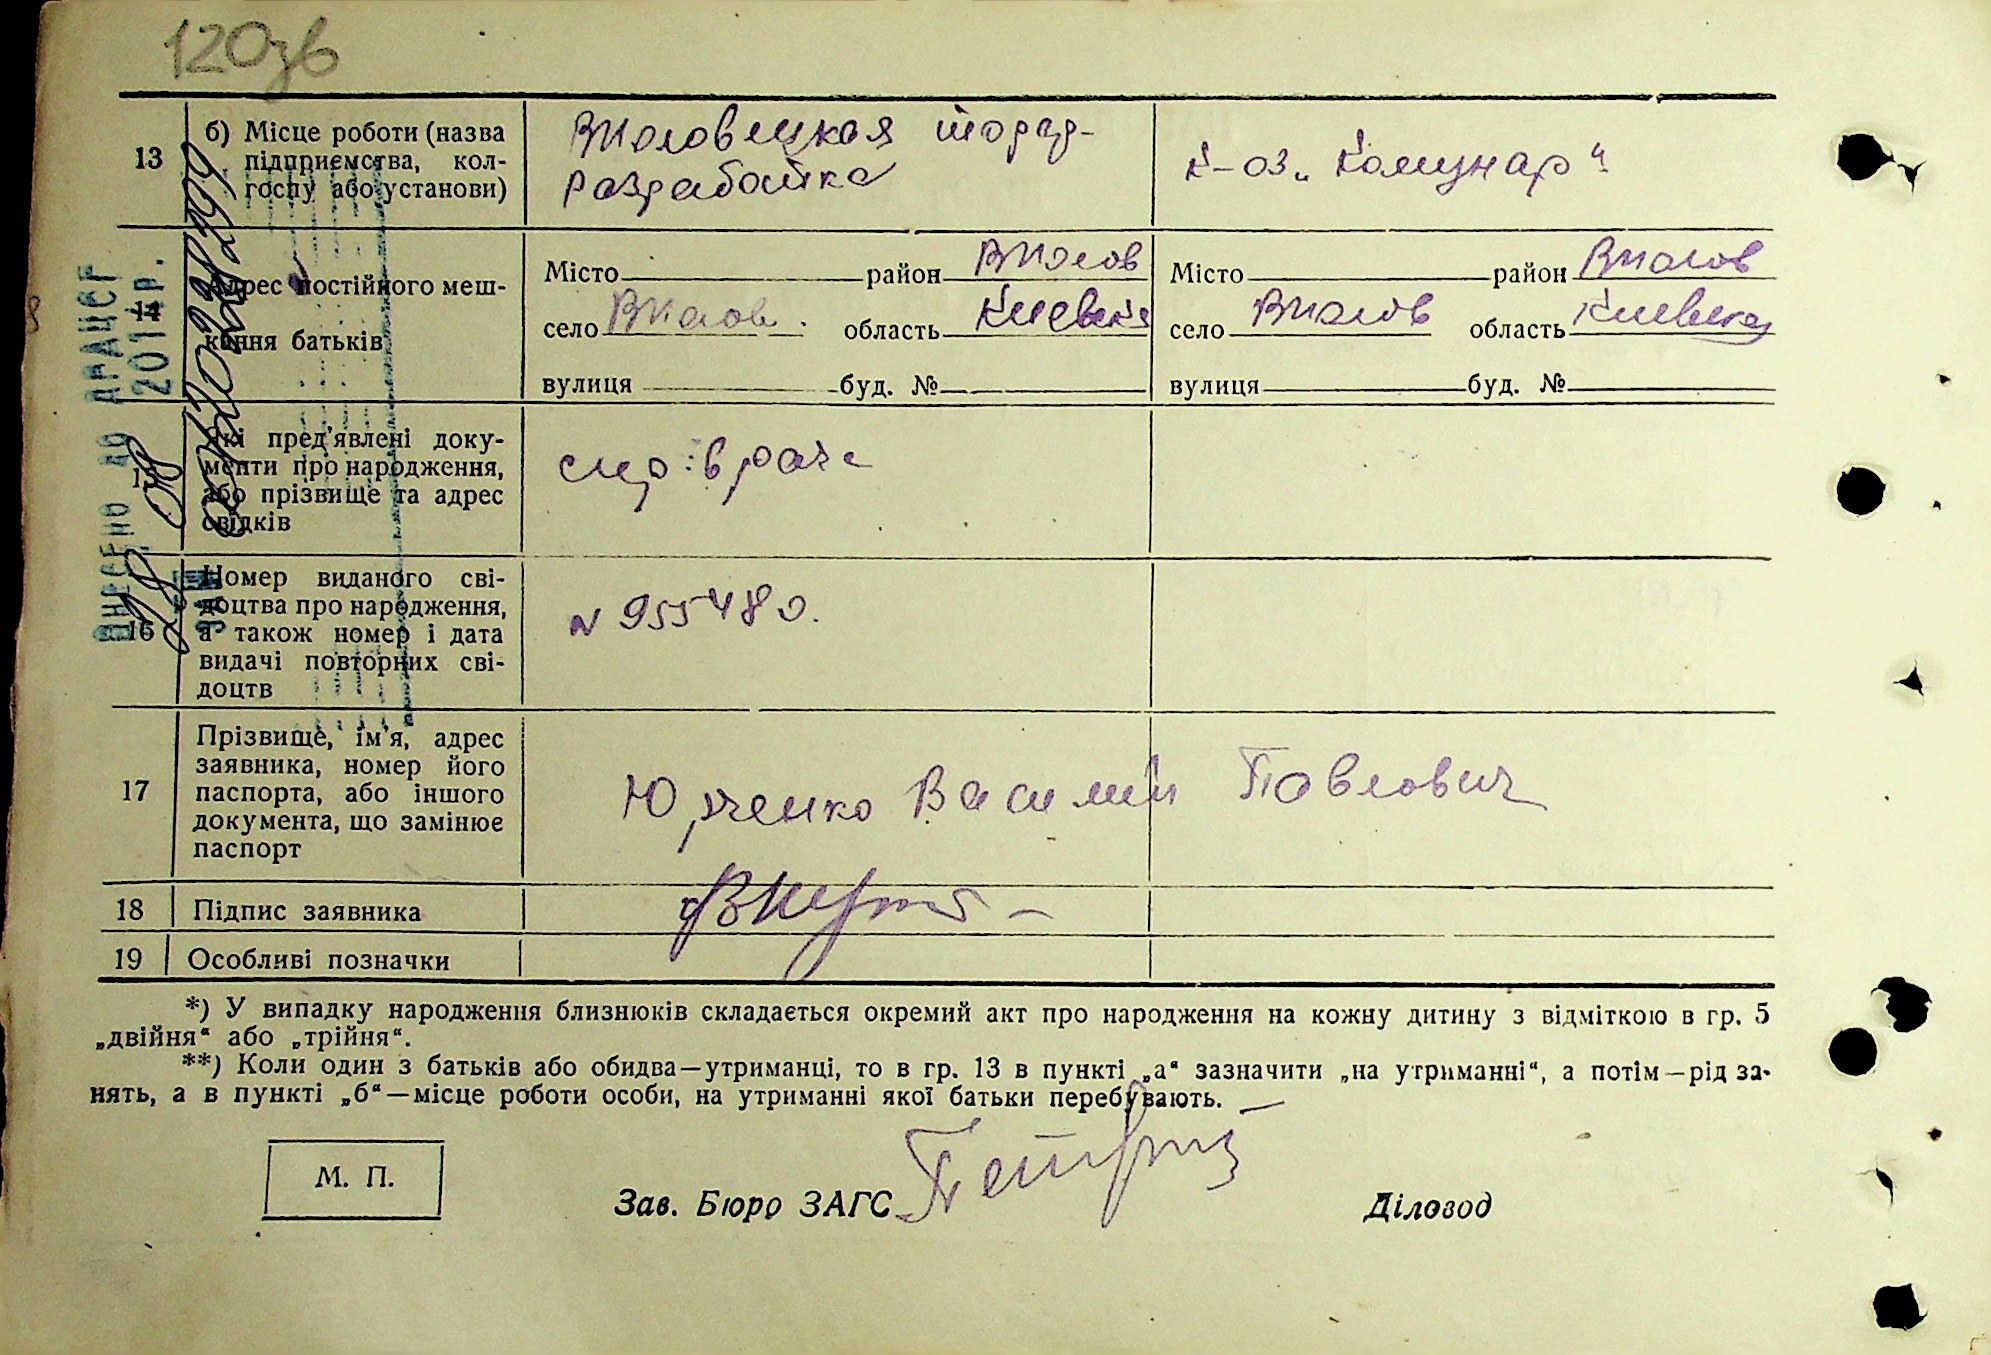 120зв
13
б) Місце роботи (назва
підприємства, кол-
госпу або установи)
разработка
к-оз „Комунар“
14
Адрес постійного меш-
кання батьків
Місто район
село область
вулиця буд. №
Місто район
село область
вулиця буд. №
Внесено до ДРАЦСГ
28 08 201 р.
15
Які пред'явлені доку-
менти про народження,
або прізвище та адрес
свідків
врача
16
Номер виданого сві-
доцтва про народження,
а також номер і дата
видачі повторних сві-
доцтв
N 955480.
17
Прізвище, ім'я, адрес
заявника, номер його
паспорта, або іншого
документа, що замінює
паспорт
Юрченко Василий Павлович
18 Підпис заявника
19 Особливі позначки
*) У випадку народження близнюків складається окремий акт про народження на кожну дитину з відміткою в гр. 5
„двійня“ або „трійня“.
**) Коли один з батьків або обидва—утриманці, то в гр. 13 в пункті „а“ зазначити „на утриманні“, а потім—рід за-
нять, а в пункті „б“—місце роботи особи, на утриманні якої батьки перебувають.
М. П.
Зав. Бюро ЗАГС
Діловод